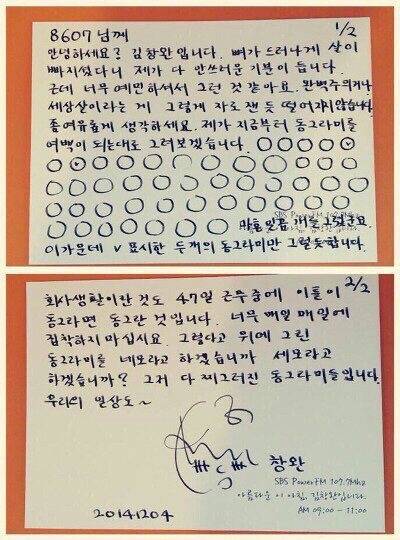 8607님께
1/2
안녕하세요? 김창완입니다. 뼈가 드러나게 살이
빠지셨다니 제가 다 안쓰러운 기분이 듭니다.
근데 너무 예민하셔서 그런 것 같아요. 완벽주의거나
세상살이라는 게 그렇게 자로 잰 듯 떨어지지않습니다.
좀 여유롭게 생각하세요. 제가 지금부터 동그라미를
여백이 되는대로 그려보겠습니다.
마흔일곱 개를 그렸군요.
SBS PowerFM 107.7Mhz
이가운데 v 표시한 두개의 동그라미만 그럴듯합니다.
2/2
회사생활이란것도 47일 근무중에 이틀이
동그라면 동그란 것입니다. 너무 매일매일에
집착하지 마십시요. 그렇다고 위에 그린
동그라미를 네모라고 하겠습니까 세모라고
하겠습니까? 그저 다 찌그러진 동그라미들입니다.
우리의 일상도~
창완
SBS PowerFM 107.7Mhz
아름다운 이 아침, 김창완입니다.
AM 09:00 - 11:00
20141204